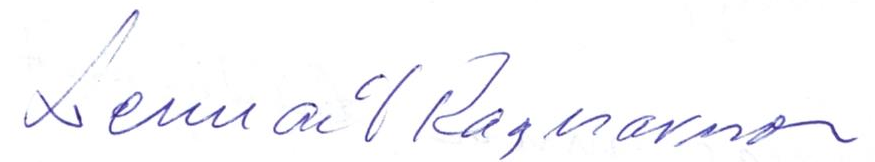 Lennart Ragnarsson